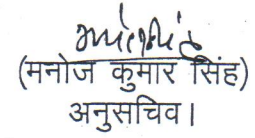 (मनोज कुमार सिंह)
अनुसचिव।